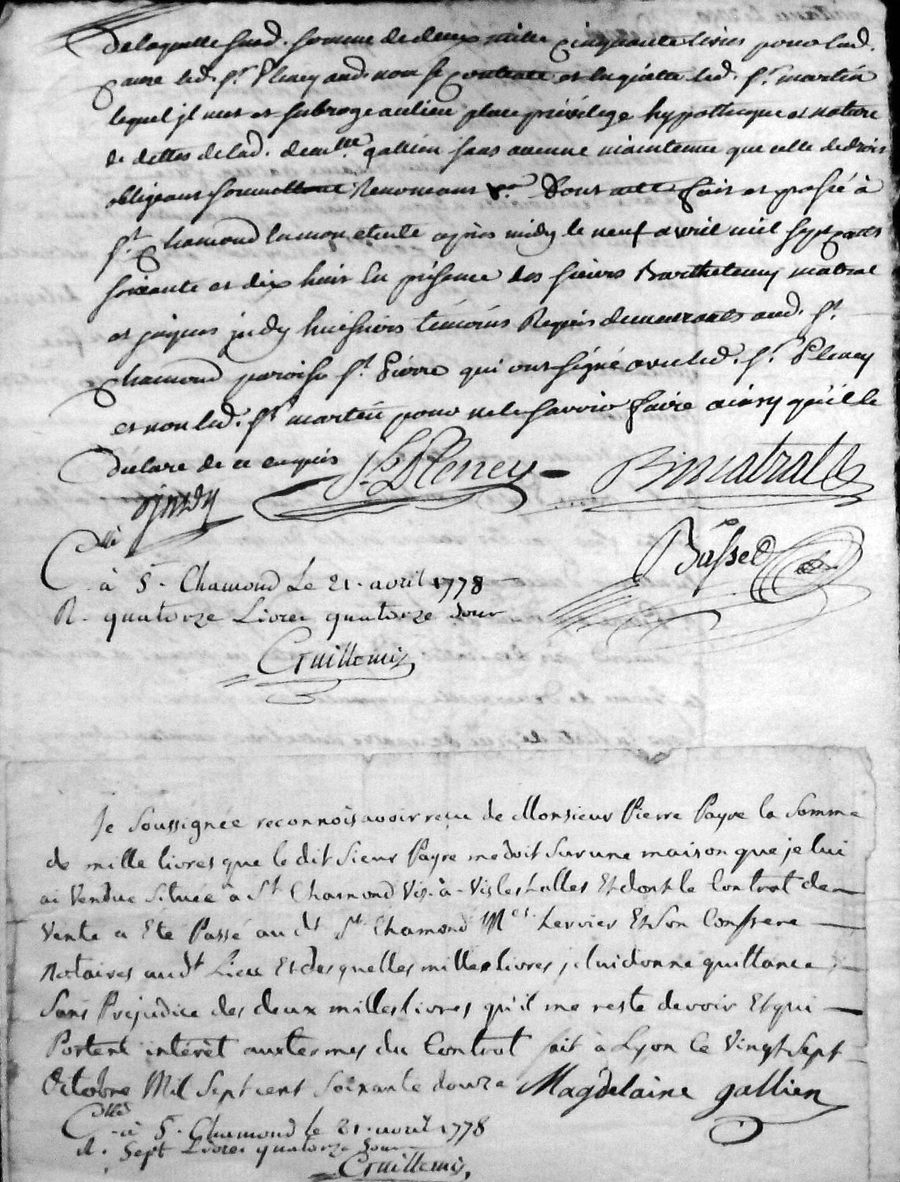 De laquelle susd. somme de deux mille cinquante livres pour lad.
cause led. Sr. Pleney aud. nom se contente et en quitte led. Sr. martin
lequel jl met et subroge au lieu place privilege hypotheque et nature
de dettes delad. demlle. gallien sans aucune maintenue que celle de droit
obligeant soumettant Renonceant &a. Dont acte fait et passé à
St. Chamond en mon etude après midy le neuf avril mil sept cents
soixante et dix huit En présence des sieurs Barthelemy matrat
et jaques judy huissiers témoins Requis demeurants aud. St.
chamond paroisse St. Pierre qui ont signé avec led. Sr. Pleney
et non led. Sr. martin pour ne le savoir faire ainsy qu'il le
declare de ce enquis
Pleney
B matrat
judy
Basset
Cllé
à St. Chamond Le 21. avril 1778
R. quatorze Livres quatorze sous
Guillemin
Je Soussignée reconnois avoir reçu de Monsieur Pierre Payre la Somme
de mille livres que le dit Sieur Payre me doit Sur une maison que je lui
ai Vendue Située à St Chamond Vis-à-Vis les halles Et dont le Contrat de
Vente a Eté Passé au dt. St. Chamond Mes. Tervier Et Son Confrere
Notaires au dt Lieu Et desquelles milles livres je lui donne quittance
Sans Prejudice des deux milles livres qu'il me reste devoir Et qui
Portent intérêt aux termes du Contrat fait à Lyon Le Vingt Sept
Octobre Mil Sept cent Soixante douze Magdelaine gallien
Cllé
à St. Chamond le 21. avril 1778
R. Sept Livres quatorze Sous
Guillemin